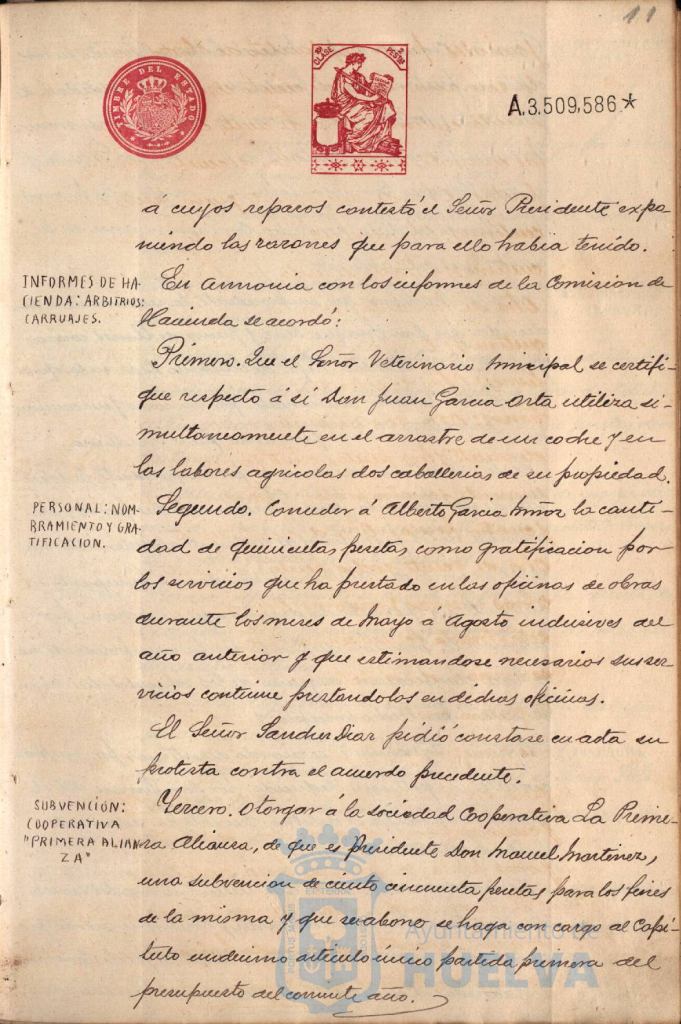 11
TIMBRE DEL ESTADO
10ª CLASE 2 PESETAS
A.3.509,586*
á cuyos reparos contestó el Señor Presidente expo
niendo las razones que para ello habia tenido.
INFORMES DE HA-
CIENDA: ARBITRIOS:
CARRUAJES.
En armonia con los informes de la Comision de
Hacienda se acordó:
Primero. Que el Señor Veterinario municipal se certifi-
que respecto á si Don Juan Garcia Orta utiliza si-
multaneamente en el arrastre de un coche y en
las labores agricolas dos caballerias de su propiedad.
PERSONAL: NOM-
BRAMIENTO Y GRA-
TIFICACION.
Segundo. Conceder á Alberto Garcia Muñoz la canti-
dad de quinientas pesetas como gratificacion por
los servicios que ha prestado en las oficinas de obras
durante los meses de Mayo á Agosto inclusives del
año anterior y que estimandose necesarios sus ser-
vicios continue prestandolos en dichas oficinas.
El Señor Sanchez Diaz pidió constase en acta su
protesta contra el acuerdo precedente.
SUBVENCIÓN:
COOPERATIVA
"PRIMERA ALIAN-
ZA"
Tercero. Otorgar á la sociedad Cooperativa La Prime-
ra Alianza, de que es Presidente Don Manuel Martinez,
una subvencion de ciento cincuenta pesetas para los fines
de la misma y que su abono se haga con cargo al Capi-
tulo undecimo articulo único partida primera del
presupuesto del corriente año.
Ayuntamiento de
HUELVA